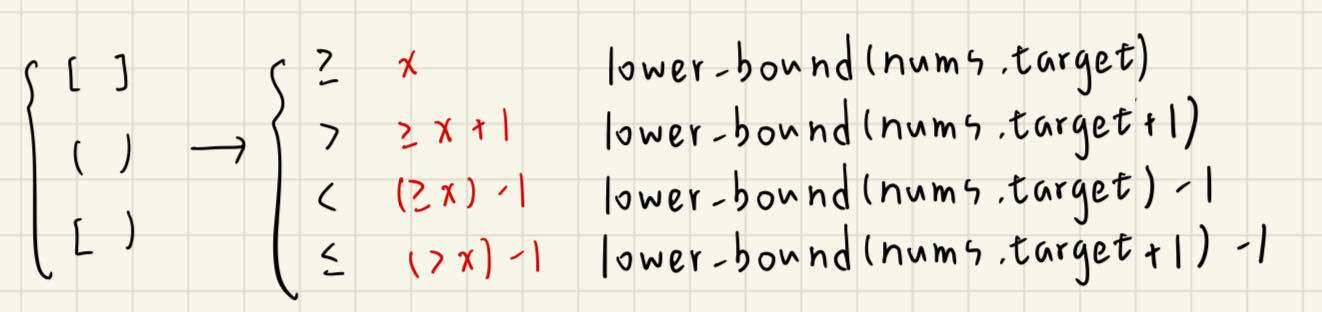 [ ]
( )
[ )
→
≥ x lower-bound(nums.target)
> ≥ x + 1 lower-bound(nums.target+1)
< (≥ x) - 1 lower-bound(nums.target) - 1
≤ (> x) - 1 lower-bound(nums.target+1) - 1